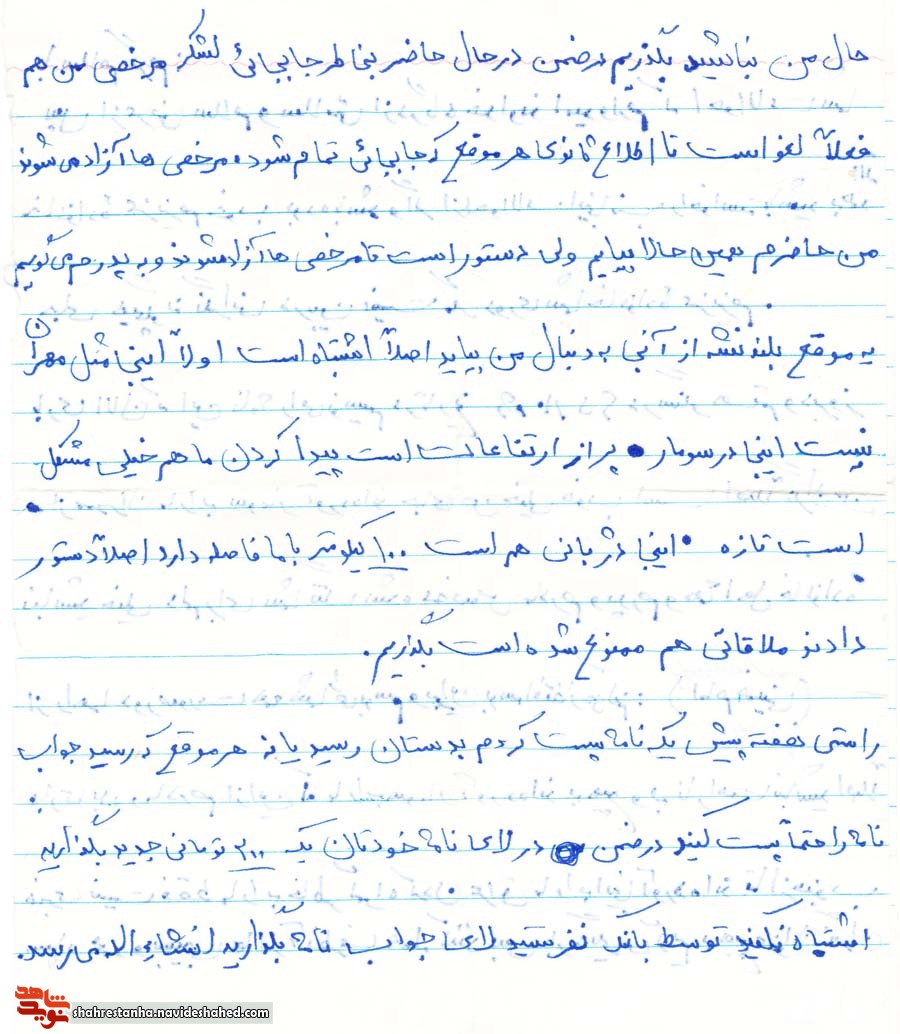 حال من نباشید بگذریم درضمن درحال حاضر بخاطر جابجائی لشکر مرخصی من هم
فعلاً لغو است تا اطلاع ثانوی هر موقع که جابجائی تمام شود مرخصی ها آزاد می شوند
من حاضرم همین حالا بیایم ولی دستور است تا مرخصی ها آزاد شوند و به پدرم می گویم
یه موقع بلند نشه از آنجا به دنبال من بیاید اصلاً اشتباه است اولاً اینجا مثل مهران
نیست اینجا در سومار پر از ارتفاعات است پیدا کردن ما هم خیلی مشکل
است تازه اینجا دژبانی هم است ۱۰۰ کیلومتر با ما فاصله دارد اصلاً دستور
دادند ملاقاتی هم ممنوع شده است بگذاریم.
راستی هفته پیش یک نامه پست کردم بدستان رسید یا نه هر موقع که رسید جواب
نامه را حتماً پست کنید درضمن در لای نامه خودتان یک ۲۰۰ تومانی جدید بگذارید
اشتباه نکنید توسط بانک نفرستید لای جواب نامه بگذارید انشاء الله می رسد.
شاهد
نوید
shahrestanha.navideshahed.com